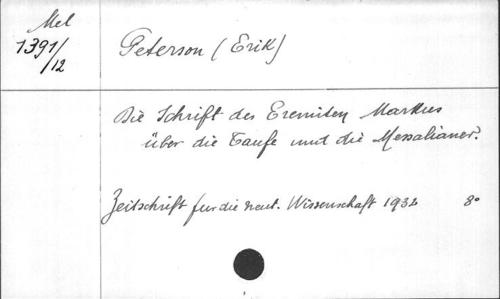 Mel
1391/12
Peterson (Erik)
Die Schrift des Eremiten Markus
über die Taufe und die Messalianer.
Zeitschrift für die neut. Wissenschaft 1932 8°